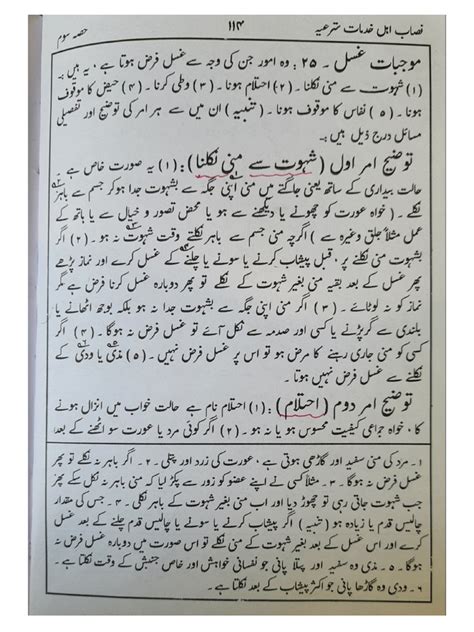 نصاب اہل خدمات شرعیہ ۱۱۴ حصہ سوم
موجبات غسل ۔ ۲۵ : وہ امور جن کی وجہ سے غسل فرض ہوتا ہے ، یہ ہیں :۔
(۱) شہوت سے منی نکلنا ۔ (۲) احتلام ہونا ۔ (۳) وطی کرنا ۔ (۴) حیض کا موقوف
ہونا ۔ (۵) نفاس کا موقوف ہونا ۔ (تنبیہ) ان میں سے ہر امر کی توضیح اور تفصیلی
مسائل درج ذیل ہیں :۔
توضیح امر اول (شہوت سے منی نکلنا) : (۱) یہ صورت خاص ہے
حالت بیداری کے ساتھ یعنی جاگتے میں منی اپنی جگہ سے بشہوت جدا ہوکر جسم سے باہر
نکلے ۔ ( خواہ عورت کو چھونے یا دیکھنے سے ہو یا محض تصور و خیال سے یا ہاتھ کے
عمل مثلاً جلق وغیرہ سے ) اگرچہ منی جسم سے باہر نکلتے وقت شہوت نہ ہو ۔ (۲) اگر
منی نکلنے پر ، قبل پیشاب کرنے یا سونے یا چلنے کے غسل کرے اور نماز پڑھے
پھر غسل کے بعد بقیہ منی بغیر شہوت کے نکلے تو دوبارہ غسل کرنا فرض ہے مگر
نماز کو نہ لوٹائے ۔ (۳) اگر منی اپنی جگہ سے بشہوت جدا نہ ہو بلکہ بوجھ اٹھانے یا
بلندی سے گرپڑنے یا کسی اور صدمہ سے نکل آئے تو غسل فرض نہ ہوگا ۔ (۴) اگر
کسی کو منی جاری رہنے کا مرض ہو تو اس پر غسل فرض نہیں ۔ (۵) مذی یا ودی کے
نکلنے سے غسل فرض نہیں ہوتا ۔
توضیح امر دوم (احتلام) : (۱) احتلام نام ہے حالت خواب میں انزال ہونے
کا ، خواہ جماعی کیفیت محسوس ہو یا نہ ہو ۔ (۲) اگر کوئی مرد یا عورت سو اٹھنے کے بعد
۱ ۔ مرد کی منی سفید اور گاڑھی ہوتی ہے ، عورت کی زرد اور پتلی ۔ ۲ ۔ اگر باہر نہ نکلے تو پھر
غسل فرض نہ ہوگا ۔ ۳ ۔ مثلاً کسی نے اپنے عضو کو زور سے پکڑ لیا کہ منی باہر نہ نکل سکے پھر
جب شہوت جاتی رہی تو چھوڑ دیا اور اب منی بغیر شہوت کے نکلی ۔ ۴ ۔ جس کی مقدار
چالیس قدم یا زیادہ ہو ( تنبیہ ) اگر پیشاب کرنے یا سونے یا چالیس قدم چلنے کے بعد غسل
کرے اور اس غسل کے بعد منی بغیر شہوت کے نکلے تو اس صورت میں دوبارہ غسل فرض نہ
ہوگا ۔ ۵ ۔ مذی وہ سفید اور پتلا پانی جو نفسانی خواہش اور خاص جنبش کے وقت نکلتا ہے ۔
۶ ۔ ودی وہ گاڑھا پانی جو اکثر پیشاب کے بعد نکلتا ہے ۔